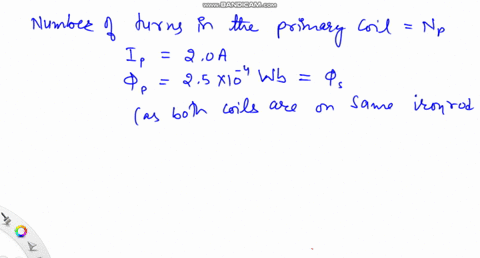 WWW.BANDICAM.COM
Number of turns in the primary coil = Np
Ip = 2.0A
Φp = 2.5 x10⁻⁴ Wb = Φs
(as both coils are on same iron rod